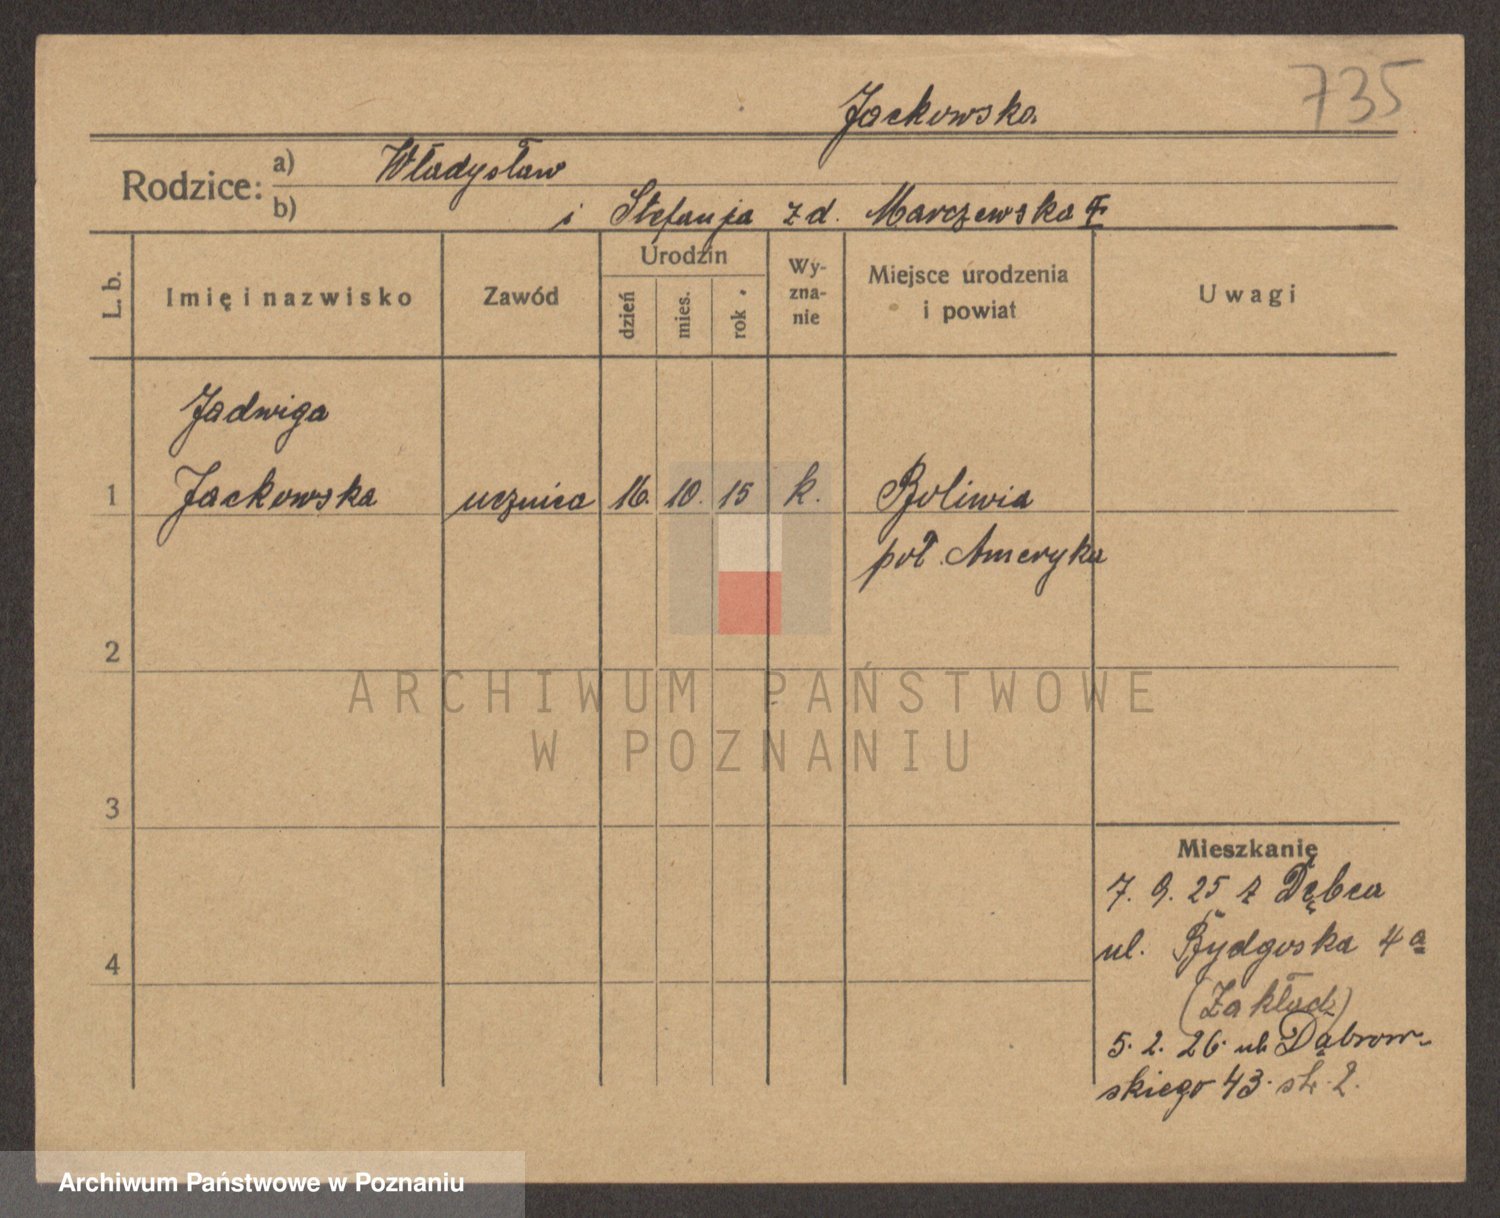 735
Jackowska
Rodzice: a) Władysław
b) i Stefanja z d. Marczewska
L. b.
Imię i nazwisko
Zawód
Urodzin
dzień
mies.
rok
Wy-
zna-
nie
Miejsce urodzenia
i powiat
Uwagi
Jadwiga
1 Jackowska ucznica 16. 10. 15 k. Boliwia
poł. Ameryka
2
3
4
Mieszkanie
7. 9. 25 z Dębca
ul. Bydgoska 4a
(Zakład)
5. 2. 26 ul. Dąbrow-
skiego 43. 2.
ARCHIWUM PAŃSTWOWE
W POZNANIU
Archiwum Państwowe w Poznaniu